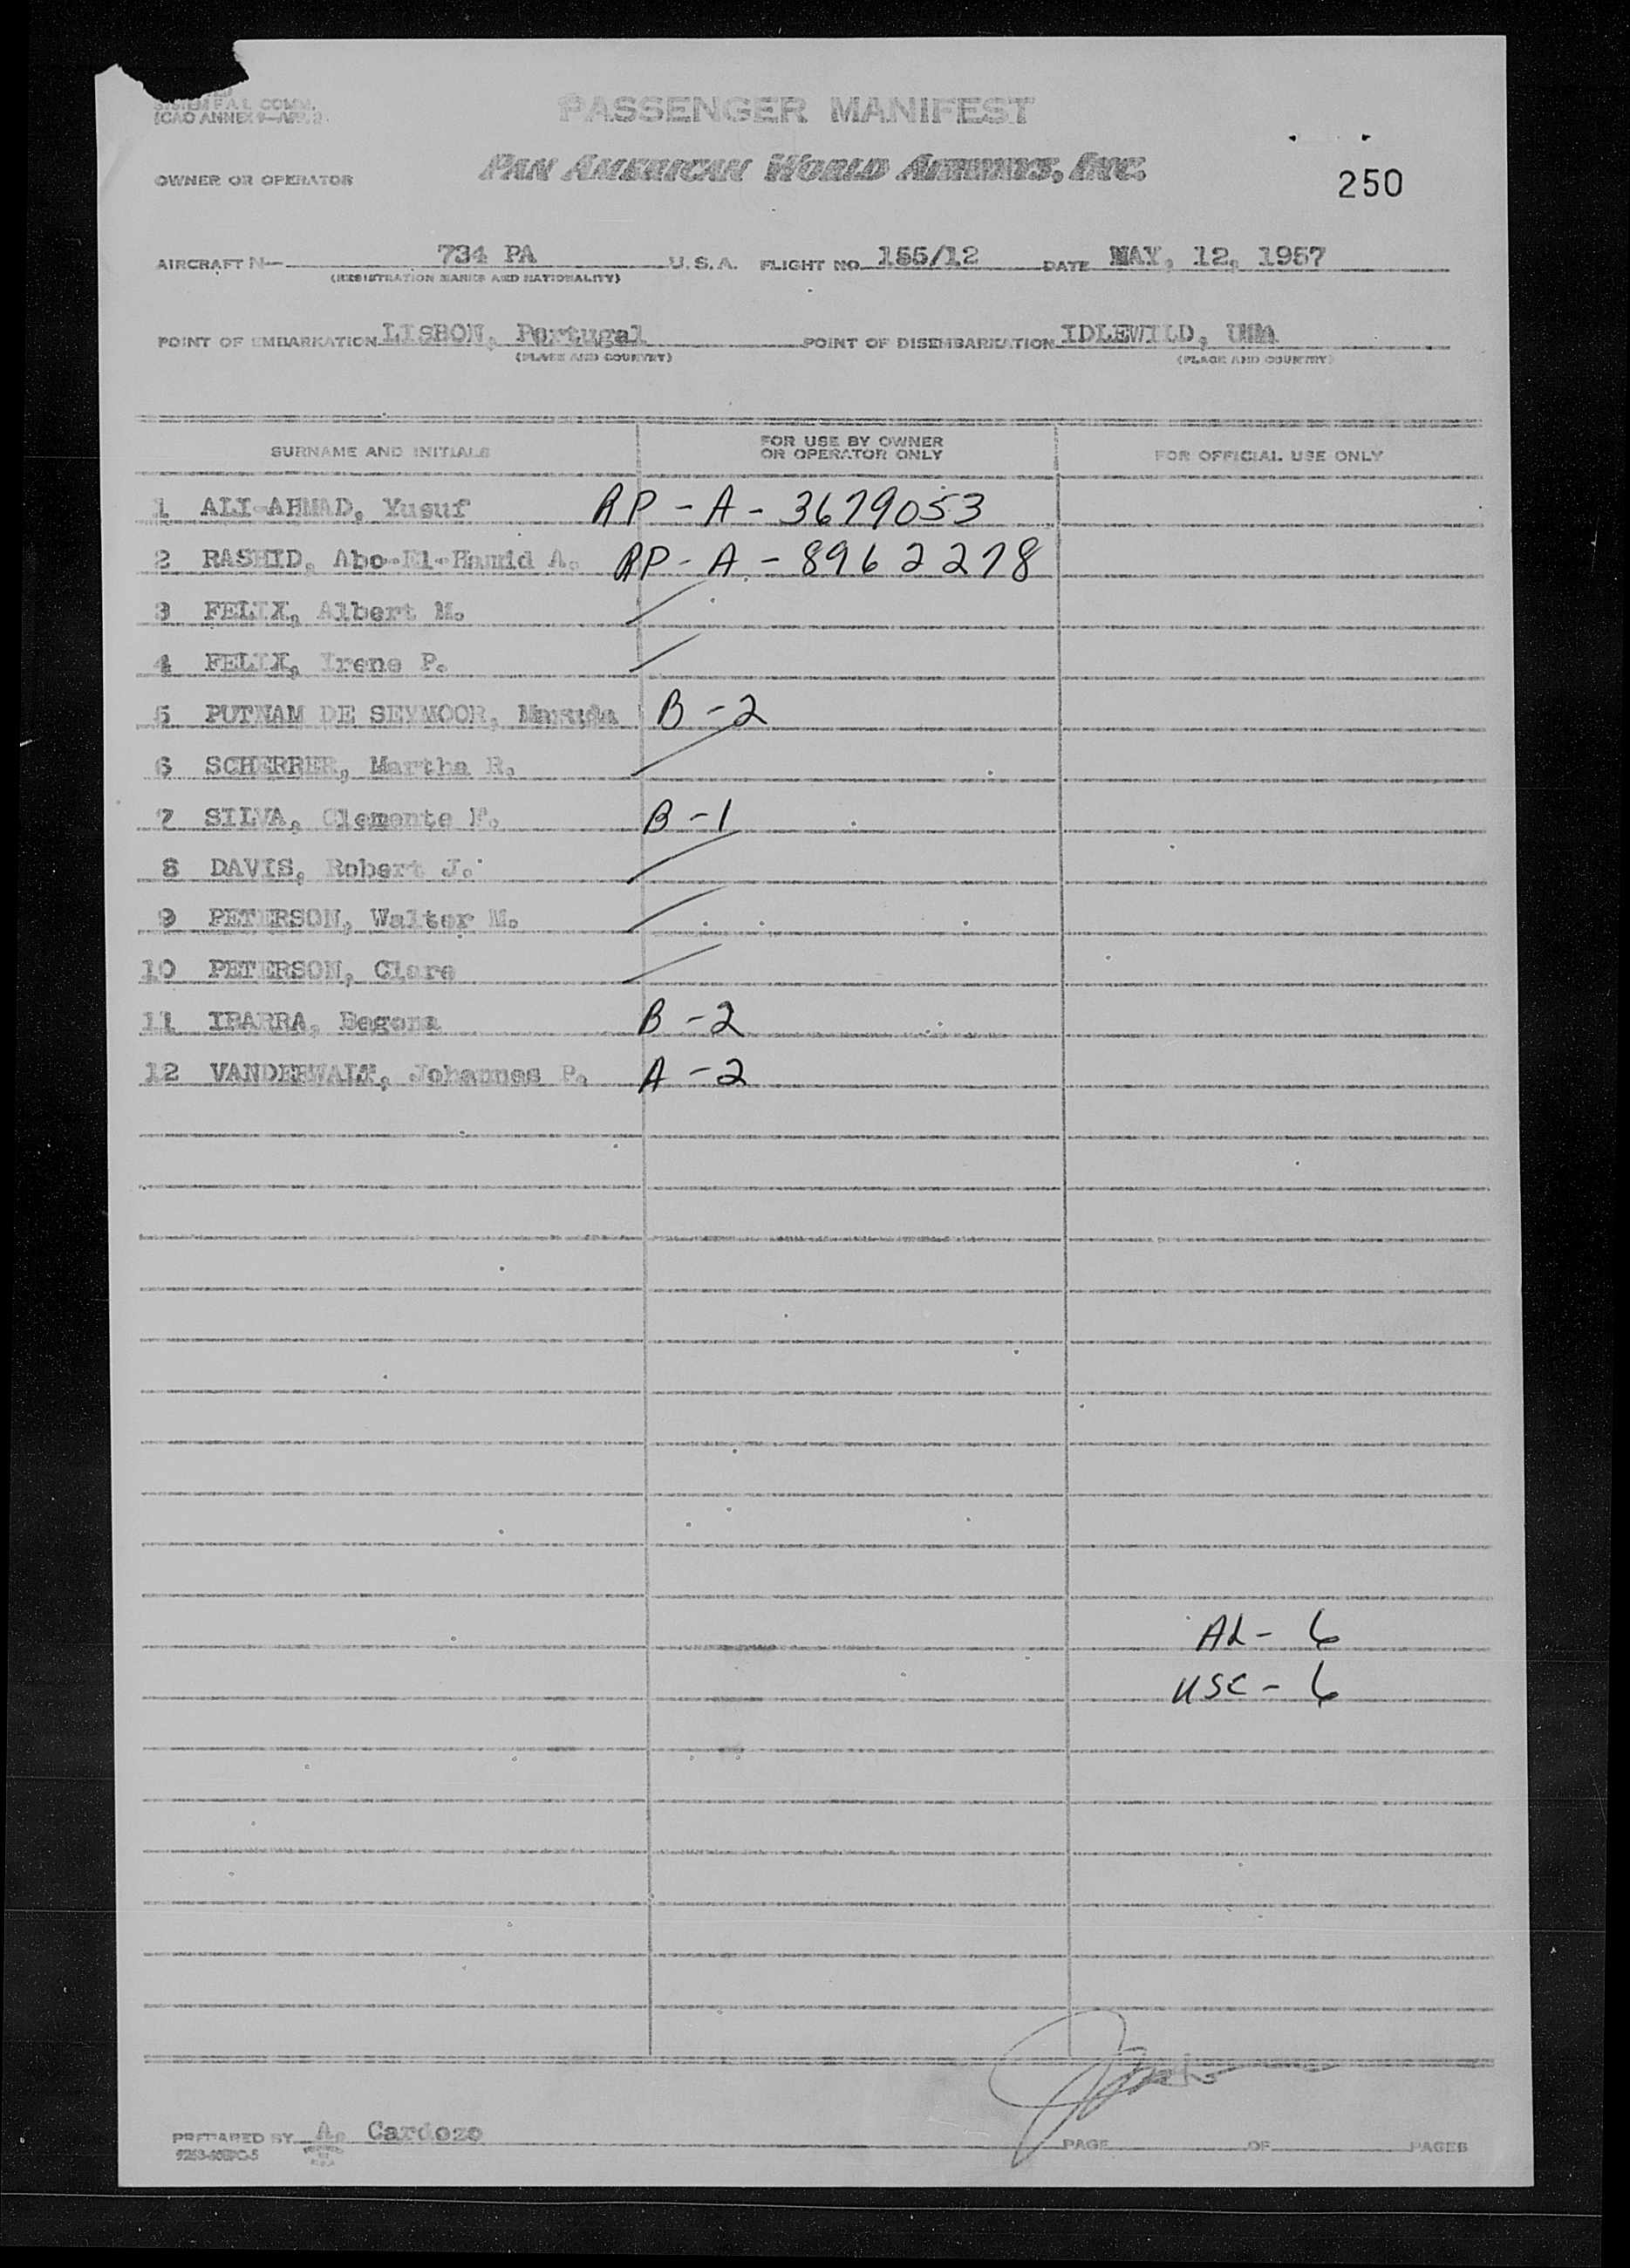 SYSTEM F.A.L. COMM.
(ICAO ANNEX 9
PASSENGER MANIFEST
PAN AMERICAN WORLD AIRWAYS, INC.
OWNER OR OPERATOR
250
AIRCRAFT N- 734 PA U.S.A. FLIGHT NO. 155/12 DATE MAY, 12, 1957
(REGISTRATION MARKS AND NATIONALITY)
POINT OF EMBARKATION LISBON, Portugal POINT OF DISEMBARKATION IDLEWILD, USA
(PLACE AND COUNTRY) (PLACE AND COUNTRY)
SURNAME AND INITIALS FOR USE BY OWNER OR OPERATOR ONLY FOR OFFICIAL USE ONLY
1 ALI-AHMAD, Yusuf RP-A-3679053
2 RASHID, Abo-El-Hamid A. RP-A-8962278
3 FELIX, Albert M.
4 FELIX, Irene P.
5 PUTNAM DE SEYMOOR, B-2
6 SCHERRER, Martha R.
7 SILVA, Clemente F. B-1
8 DAVIS, Robert J.
9 PETERSON, Walter M.
10 PETERSON, Clare
11 IBARRA, Begona B-2
12 VANDERWALT, Johannes P. A-2
AL- 6
USC- 6
PREPARED BY A. Cardozo PAGE OF PAGES